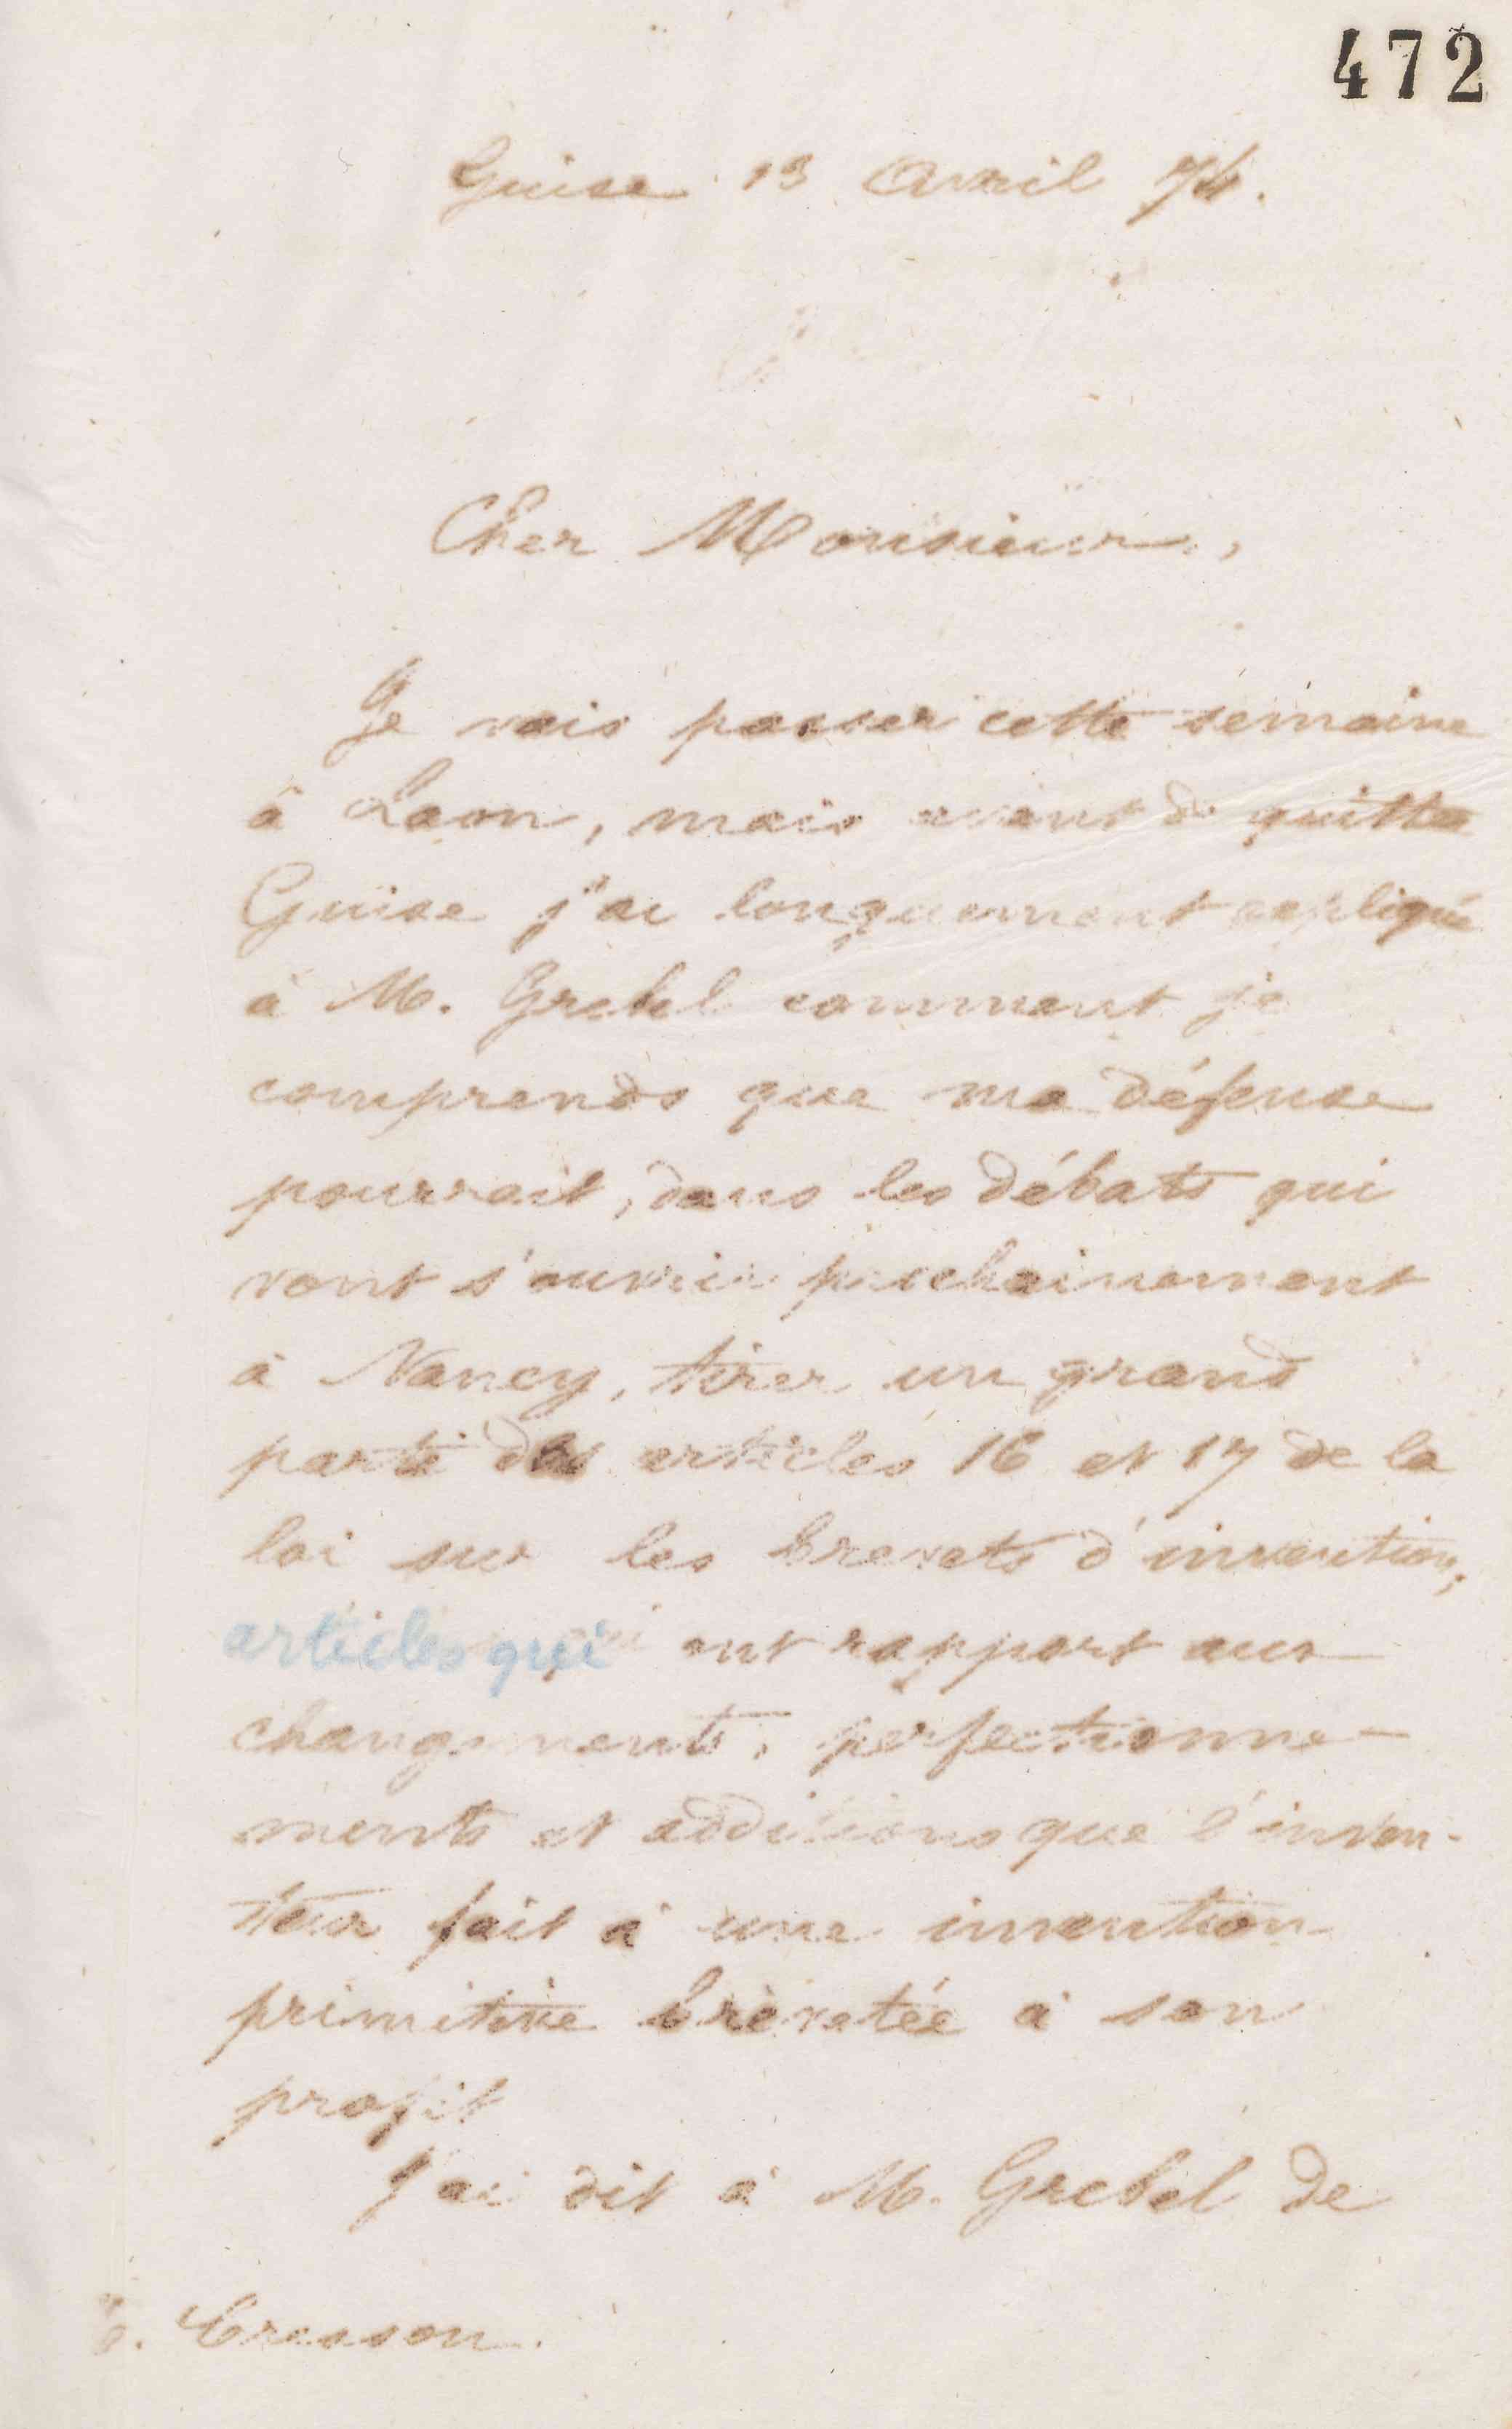 472
Guise 13 Avril 74.
Cher Monsieur,
Je vais passer cette semaine
à Laon, mais avant de quitter
Guise j'ai longuement expliqué
à M. Grebel comment je
comprends que ma défense
pourrait, dans les débats qui
vont s'ouvrir prochainement
à Nancy, tirer un grand
parti des articles 16 et 17 de la
loi sur les brevets d'invention,
articles qui ont rapport aux
changements, perfectionne-
ments et additions que l'inven-
teur fait à une invention
primitive brevetée à son
profit
J'ai dit à M. Grebel de
Cresson.